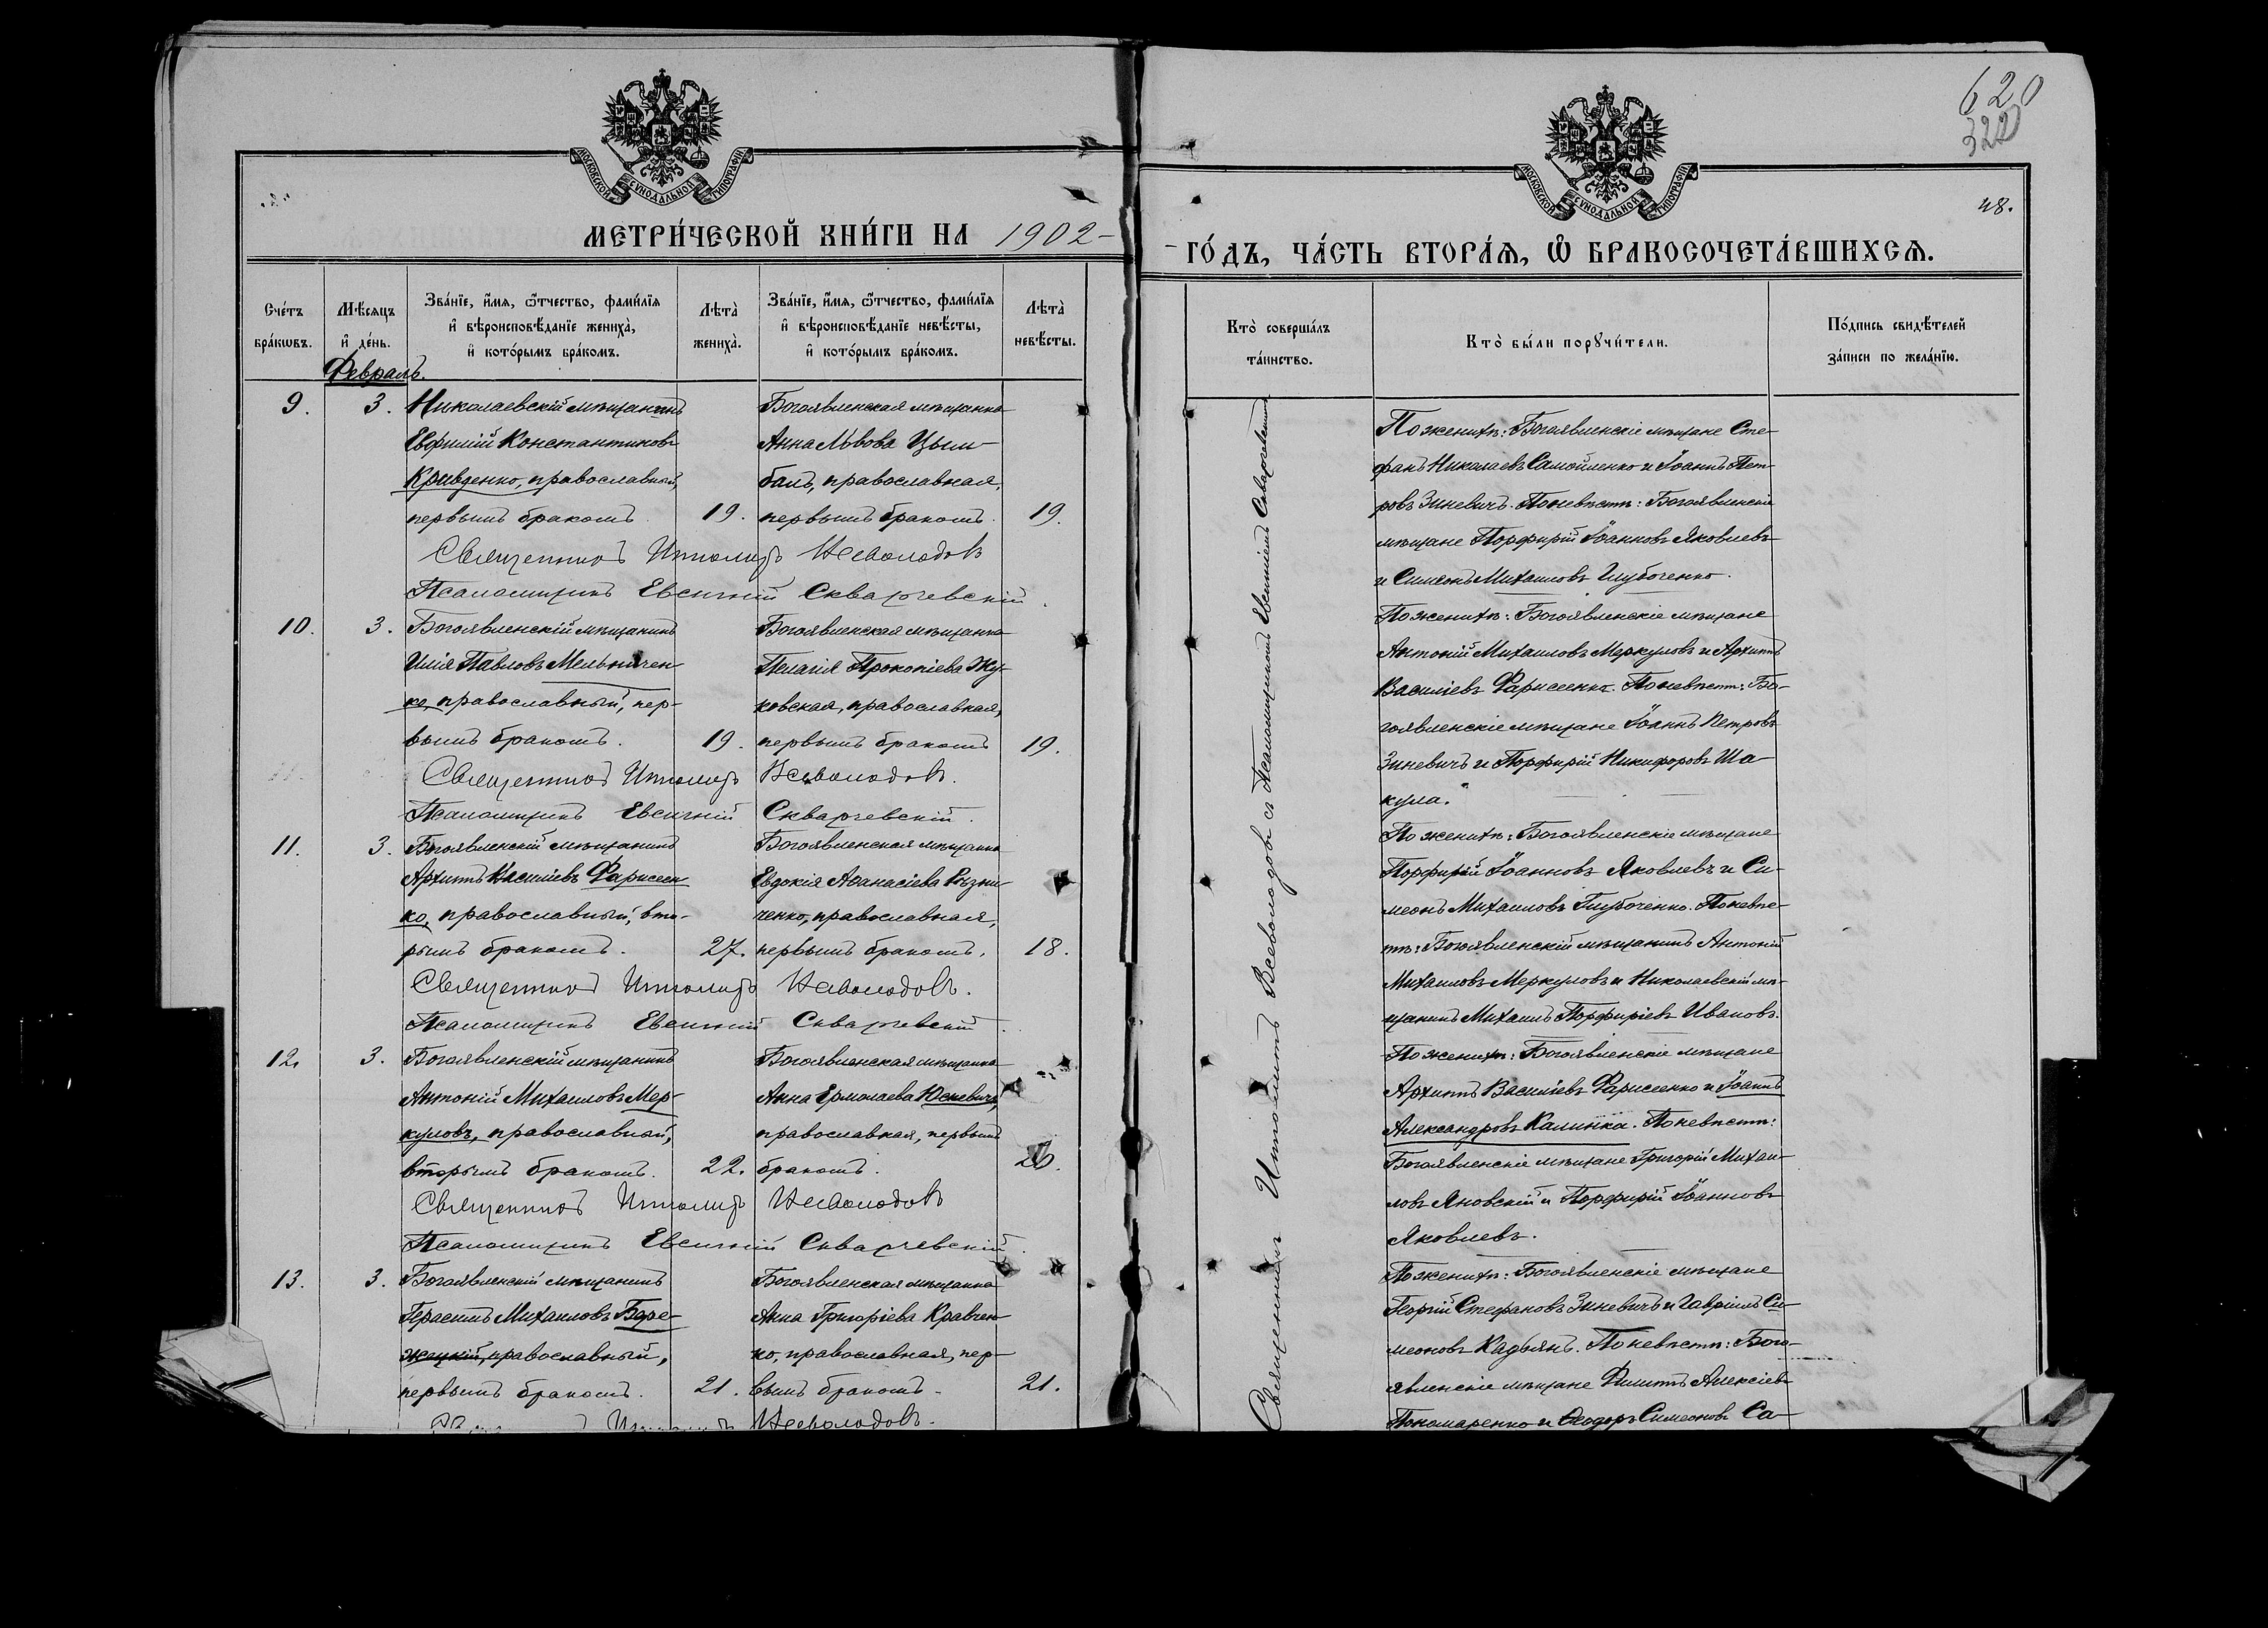 МОСКОВСКОЙ СѴНОДАЛЬНОЙ ТИПОГРАФІИ
МЕТРИ́ЧЕСКОЙ КНИ́ГИ НА 1902-
Сче́тъ бра́кѡвъ.
Мѣ́сяцъ и҆ де́нь.
Зва́нїе, и҆́мѧ, ѻ҆́тчество, фами́лїѧ
и҆ вѣроисповѣ́данїе жениха̀,
и҆ кото́рымъ бра́комъ.
Лѣта̀ жениха̀.
Зва́нїе, и҆́мѧ, ѻ҆́тчество, фами́лїѧ
и҆ вѣроисповѣ́данїе невѣ́сты,
и҆ кото́рымъ бра́комъ.
Лѣта̀ невѣ́сты.
Февраль.
9. 3.
Николаевскій мѣщанинъ
Евфимій Константиновъ
Кривденко, православный,
первымъ бракомъ 19.
Богоявленская мѣщанка
Анна Львова Цым-
балъ, православная,
первымъ бракомъ. 19.
Священникъ Ипполитъ Всеволодовъ
Псаломщикъ Евсигній Скваржевскій.
10. 3.
Богоявленскій мѣщанинъ
Илія Павловъ Мельничен-
ко, православный, пер-
вымъ бракомъ. 19.
Богоявленская мѣщанка
Пелагія Прокопіева Жу-
ковская, православная,
первымъ бракомъ 19.
Священникъ Ипполитъ Всеволодовъ.
Псаломщикъ Евсигній Скваржевскій.
11. 3.
Богоявленскій мѣщанинъ
Архиппъ Василіевъ Фарисеен-
ко, православный, вто-
рымъ бракомъ. 27.
Богоявленская мѣщанка
Евдокія Аѳанасіева Рѣзни-
ченко, православная,
первымъ бракомъ. 18.
Священникъ Ипполитъ Всеволодовъ.
Псаломщикъ Евсигній Скваржевскій.
12. 3.
Богоявленскій мѣщанинъ
Антоній Михаиловъ Мер-
куловъ, православный,
вторымъ бракомъ. 22.
Богоявленская мѣщанка
Анна Ермолаева Юскевичъ,
православная, первымъ
бракомъ.
Священникъ Ипполитъ Всеволодовъ
Псаломщикъ Евсигній Скваржевскій.
13. 3.
Богоявленскій мѣщанинъ
Герасимъ Михаиловъ Бере-
жецкій, православный,
первымъ бракомъ. 21.
Богоявленская мѣщанка
Анна Григоріева Кравчен-
ко, православная, пер-
вымъ бракомъ. 21.
Всеволодовъ.
620
322
МОСКОВСКОЙ СѴНОДАЛЬНОЙ ТИПОГРАФІИ
48.
-ГО́ДЪ, ЧА́СТЬ ВТОРА́Ѧ, Ѽ БРАКОСОЧЕТА́ВШИХСѦ.
Кто̀ соверша́лъ та́инство.
Кто̀ бы́ли порꙋчи́тели.
По́дпись свидѣ́телей за́писи по жела́нїю.
Священникъ Ипполитъ Всеволодовъ съ Псаломщикомъ Евсигніемъ Скваржевскимъ
По женихѣ: Богоявленскіе мѣщане Сте-
фанъ Николаевъ Самойленко и Іоаннъ Пет-
ровъ Зиневичъ. По невѣстѣ: Богоявленскіе
мѣщане Порфирій Іоанновъ Яковлевъ
и Симеонъ Михаиловъ Глубоченко.
По женихѣ: Богоявленскіе мѣщане
Антоній Михаиловъ Меркуловъ и Архиппъ
Василіевъ Фарисеенко. По невѣстѣ: Бо-
гоявленскіе мѣщане Іоаннъ Петровъ
Зиневичъ и Порфирій Никифоровъ Ша-
кула.
По женихѣ: Богоявленскіе мѣщане
Порфирій Іоанновъ Яковлевъ и Си-
меонъ Михаиловъ Глубоченко. По невѣс-
тѣ: Богоявленскій мѣщанинъ Антоній
Михаиловъ Меркуловъ и Николаевскій мѣ-
щанинъ Михаилъ Порфиріевъ Ивановъ.
По женихѣ: Богоявленскіе мѣщане
Архиппъ Василіевъ Фарисеенко и Іоаннъ
Александровъ Калинка. По невѣстѣ:
Богоявленскіе мѣщане Григорій Михаи-
ловъ Яновскій и Порфирій Іоанновъ
Яковлевъ.
По женихѣ: Богоявленскіе мѣщане
Георгій Стефановъ Зиневичъ и Гавріилъ Си-
меоновъ Кадьянъ. По невѣстѣ: Бого-
явленскіе мѣщане Филиппъ Алексіевъ
Пономаренко и Ѳеодоръ Симеоновъ Са-